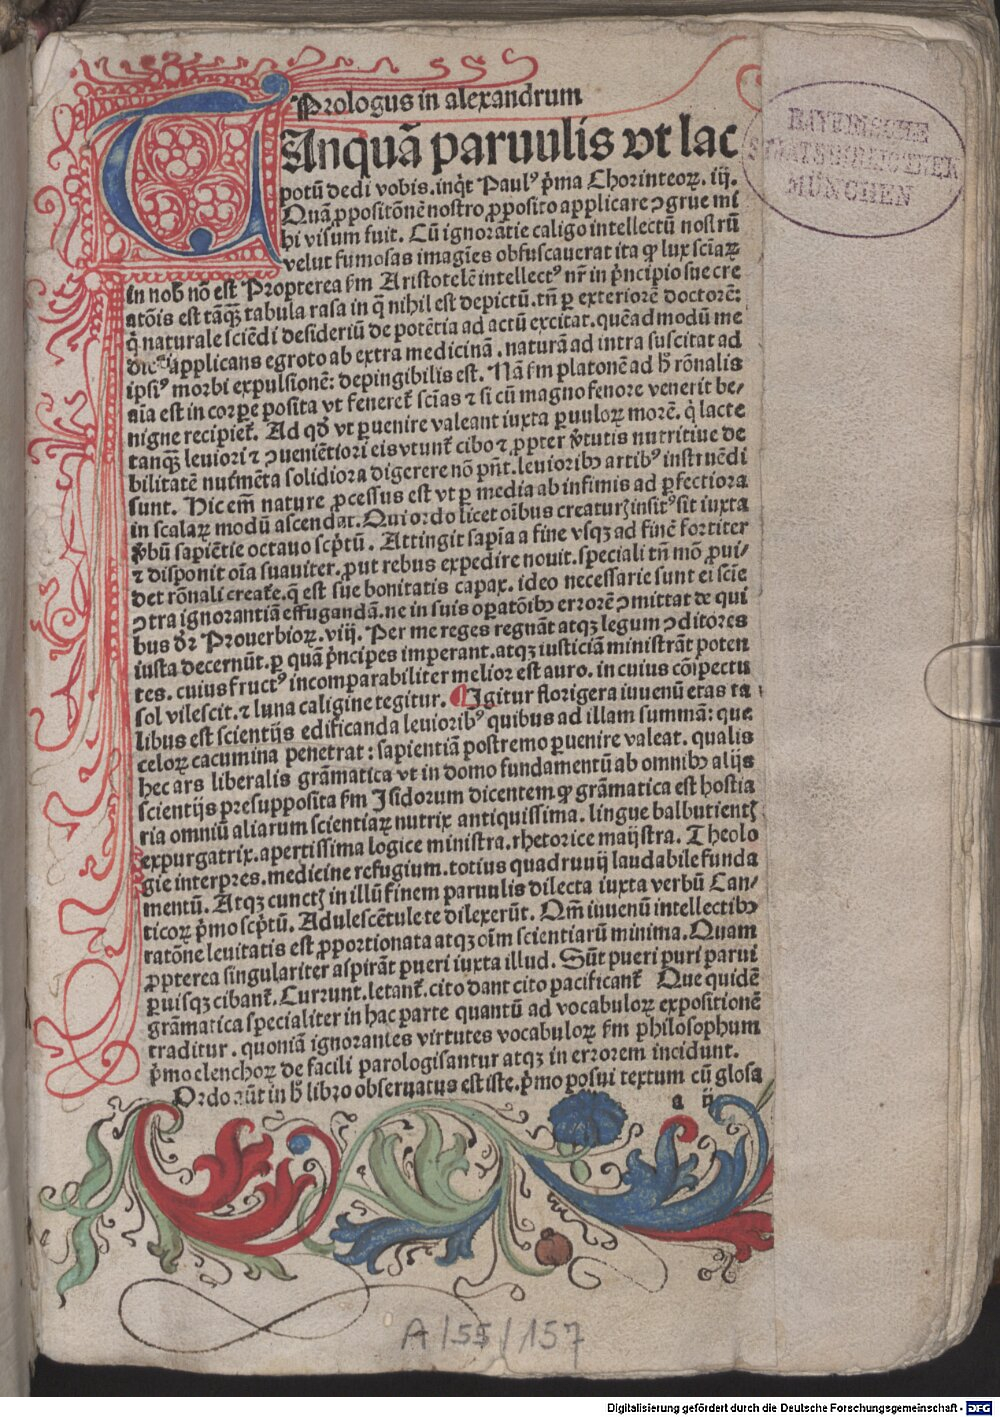 Prologus in alexandrum
TAnquā paruulis vt lac
potū dedi vobis. inq̇t Paulꝰ p̄ma Chorinteoꝝ. iij.
Quā ꝓpositōnē nostro ꝓposito applicare ↄgrue mi
hi visum fuit. Cū ignorātie caligo intellectū nostrū
velut fumosas imagīes obfuscauerat ita ꝙ lux sciāꝝ
in nob̄ nō est Propterea s̄m Aristotelē intellectꝰ nr̄ in p̄ncipio sue cre
atōis est tāqꝫ tabula rasa in q̄ nihil est depictū. tn̄ ꝑ exteriorē doctorē:
q̇ naturale sciēdi desideriū de potētia ad actū excitat. quēadmodū me
dicꝰ applicans egroto ab extra medicinā. naturā ad intra suscitat ad
ipsiꝰ morbi expulsionē: depingibilis est. Nā s̄m platonē ad h̄ rōnalis
aīa est in corpe posita vt feneret᷑ scīas ⁊ si cū magno fenore venerit be⸗
nigne recipiet᷑. Ad qd̄ vt ꝑuenire valeant iuxta ꝑuuloꝝ morē. q̇ lacte
tanqꝫ leuiori ⁊ ↄueniētiori eis vtunt᷑ cibo ⁊ ꝓpter v̄tutis nutritiue de
bilitatē nut᷑mēta solidiora digerere nō pn̄t. leuioribꝫ artibꝰ instruēdi
sunt. Hic em̄ nature ꝓcessus est vt ꝑ media ab infimis ad ꝑfectiora
in scalaꝝ modū ascendat. Qui ordo licet oībus creaturꝭ insitꝰ sit iuxta
v̄bū sapiētie octauo scp̄tū. Attingit sapīa a fine vsqꝫ ad finē fortiter
⁊ disponit oīa suauiter. ꝓut rebus expedire nouit. speciali tn̄ mō ꝓui⸗
det rōnali create. q̄ est sue bonitatis capax. ideo necessarie sunt ei sciē
ↄtra ignorantiā effugandā. ne in suis oꝑatōibꝫ errorē ↄmittat de qui
bus dr̄ Prouerbioꝝ. viij. Per me reges regnāt atqꝫ legum ↄditores
iusta decernūt. ꝑ quā p̄ncipes imperant. atqꝫ iusticiā ministrāt poten
tes. cuius fructꝰ incomparabiliter melior est auro. in cuius cōspectu
sol vilescit. ⁊ luna caligine tegitur. ¶ Igitur florigera iuuenū etas ta
libus est scientijs edificanda leuioribꝰ quibus ad illam summā: que
celoꝝ cacumina penetrat: sapientiā postremo ꝑuenire valeat. qualis
hec ars liberalis grāmatica vt in domo fundamentū ab omnibꝫ alijs
scientijs presupposita s̄m Isidorum dicentem ꝙ grāmatica est hostia
ria omniū aliarum scientiaꝝ nutrix antiquissima. lingue balbutientꝭ
expurgatrix. apertissima logice ministra. rhetorice magistra. Theolo
gie interpres. medicine refugium. totius quadruuij laudabile funda
mentū. Atqꝫ cunctꝭ in illū finem paruulis dilecta iuxta verbū Can⸗
ticoꝝ p̄mo scp̄tū. Adulescētule te dilexerūt. Qm̄ iuuenū intellectibꝫ
ratōne leuitatis est ꝓportionata atqꝫ oīm scientiarū minima. Quam
ꝓpterea singulariter aspirāt pueri iuxta illud. Sūt pueri puri parui
ꝑuisqꝫ cibant᷑. Currunt. letant᷑. cito dant cito pacificant᷑ Que quidē
grāmatica specialiter in hac parte quantū ad vocabuloꝝ expositionē
traditur. quoniā ignorantes virtutes vocabuloꝝ s̄m philosophum
p̄mo elenchoꝝ de facili parologisantur atqꝫ in errorem incidunt.
Ordo aūt in h̄ libro obseruatus est iste. p̄mo posui textum cū glosa
a ij
BAYERISCHE
STAATSBIBLIOTHEK
MÜNCHEN
A/55/157
Digitalisierung gefördert durch die Deutsche Forschungsgemeinschaft - DFG